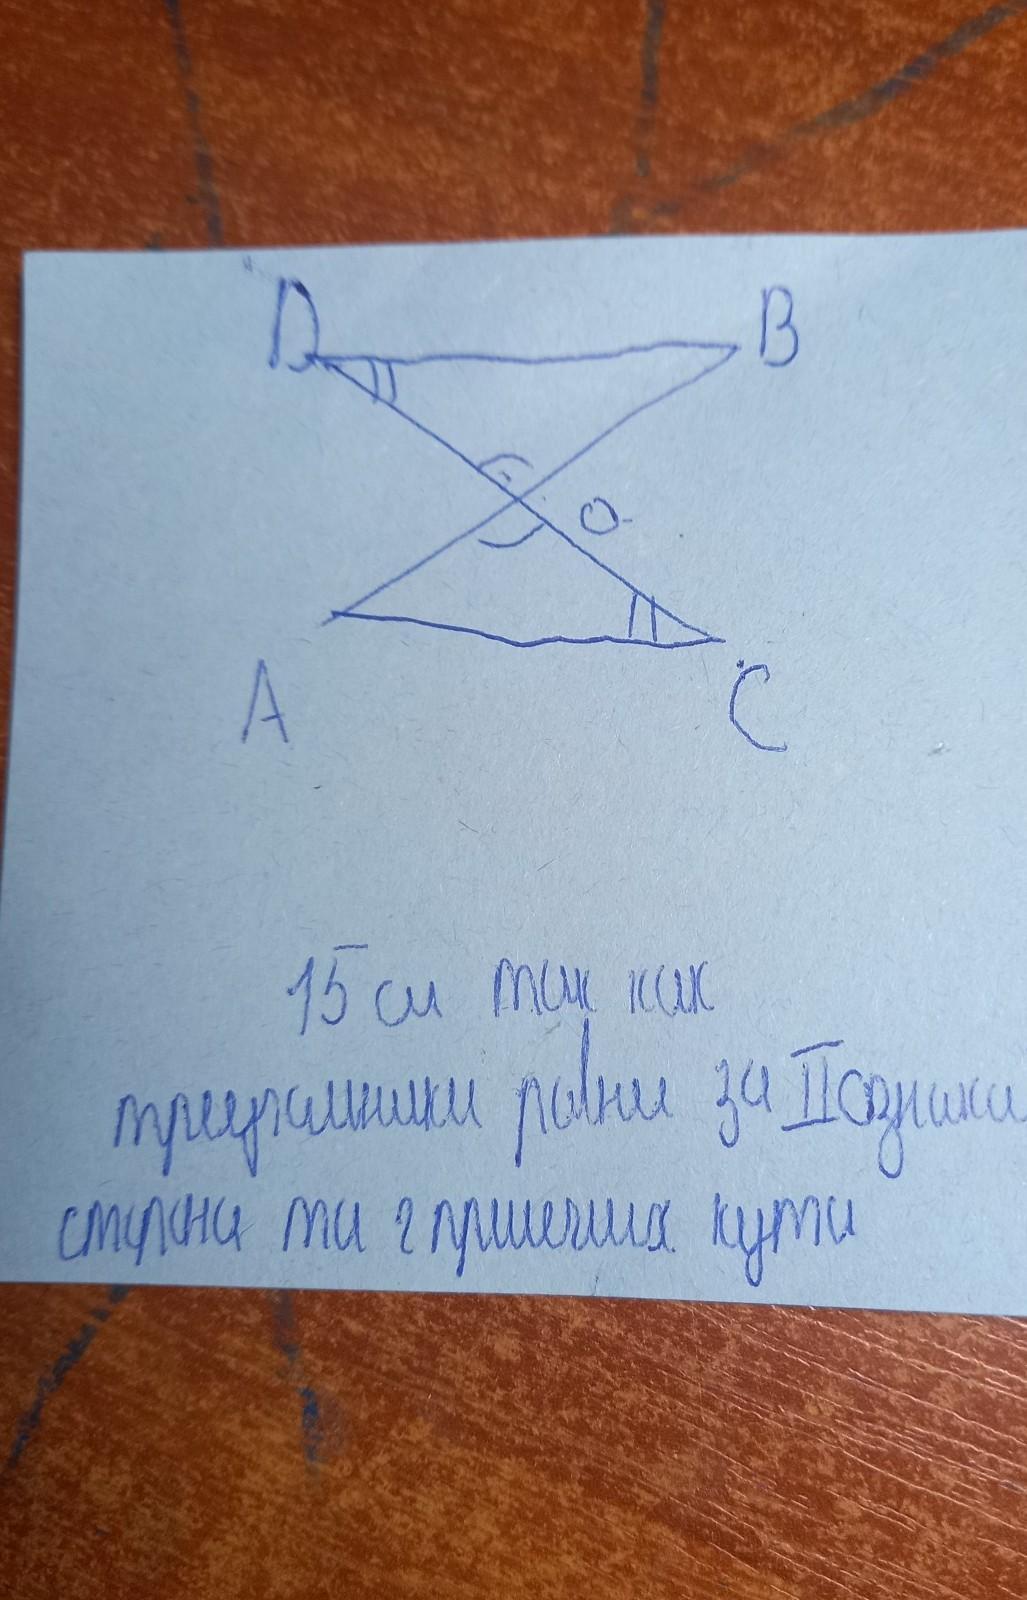 D B
O
A C
15 см так как
треугольники равни за II ознаки
сторона та 2 прилеглих кути